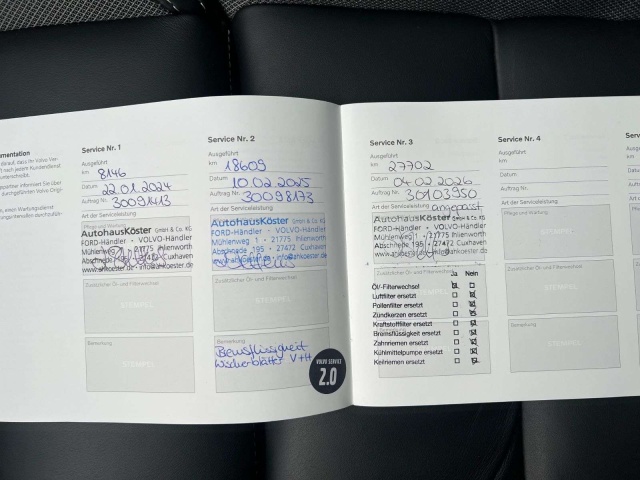 mentation
darauf, dass Ihr Volvo Ver-
Service Nr. 1
Ausgeführt
km 8146
Datum 22.01.2024
Auftrag Nr. 30091413
Art der Serviceleistung
Pflege und Wartung
AutohausKöster GmbH & Co. KG
FORD-Händler • VOLVO-Händler
Mühlenweg 1 • 21775 Ihlienworth
Abschnede 195 • 27472 Cuxhaven
www.ahkoester.de • info@ahkoester.de
Zusätzlicher Öl- und Filterwechsel
STEMPEL
Bemerkung
Service Nr. 2
Ausgeführt
km 18609
Datum 10.02.2025
Auftrag Nr. 30098173
Art der Serviceleistung
AutohausKöster GmbH & Co. KG
FORD-Händler • VOLVO-Händler
Mühlenweg 1 • 21775 Ihlienworth
Abschnede 195 • 27472 Cuxhaven
www.ahkoester.de • info@ahkoester.de
Zusätzlicher Öl- und Filterwechsel
STEMPEL
Bemerkung
Bremsflüssigkeit
Wischerblätter V+H
VOLVO SERVICE
2.0
Service Nr. 3
Ausgeführt
km 27702
Datum 04.02.2026
Auftrag Nr. 30103950
Art der Serviceleistung angepasst
Pflege und Wartung
AutohausKöster GmbH & Co. KG
FORD-Händler • VOLVO-Händler
Mühlenweg 1 • 21775 Ihlienworth
Abschnede 195 • 27472 Cuxhaven
www.ahkoester.de • info@ahkoester.de
Ja Nein
Öl-/Filterwechsel
Luftfilter ersetzt
Pollenfilter ersetzt
Zündkerzen ersetzt
Kraftstofffilter ersetzt
Bremsflüssigkeit ersetzt
Zahnriemen ersetzt
Kühlmittelpumpe ersetzt
Keilriemen ersetzt
Service Nr. 4
Ausgeführt
km
Datum
Auftrag Nr.
Art der Serviceleistung
Pflege und Wartung
STEMPEL
Zusätzlicher Öl- und Filterwechsel
STEMPEL
Bemerkung